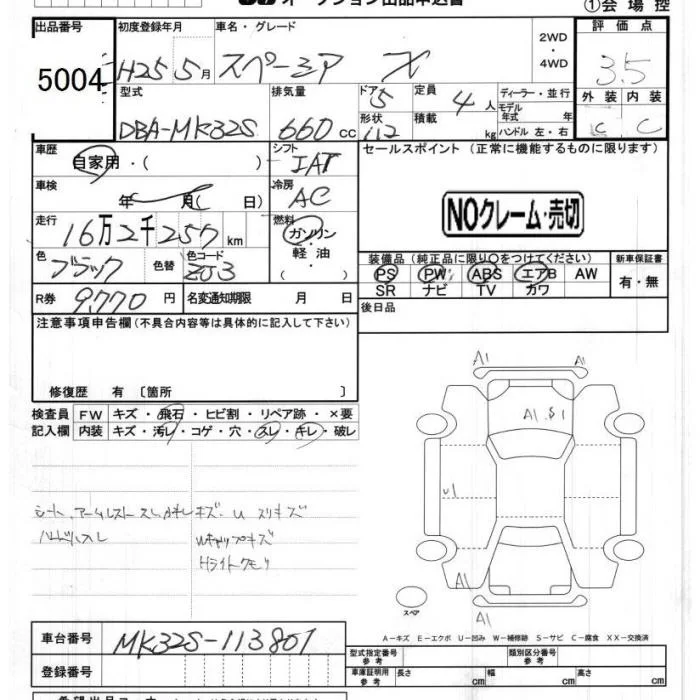 オークション出品申込書
①会場控
出品番号 初度登録年月 車名・グレード 評価点
5004 H25 5月 スペーシア X 2WD・4WD 3.5
型式 排気量 ドア 5 定員 4人 ディーラー・並行 外装 内装
DBA-MK32S 660cc 形状 積載 kg モデル年式 年 ハンドル 左・右 C C
車歴 シフト セールスポイント (正常に機能するものに限ります)
自家用・( ) IAT
車検 冷房
年 月( 日) AC NOクレーム・売切
走行 燃料
16万2千257km ガソリン・軽油・( )
色 色替 色コード 装備品(純正品に限り○をつけてください) 新車保証書
ブラック ZJ3 PS PW ABS エアB AW 有・無
SR ナビ TV カワ
R券 9,770円 名変通知期限 月 日 後日品
注意事項申告欄(不具合内容等は具体的に記入して下さい)
修復歴 有 〔箇所 〕
検査員 FW キズ・飛石・ヒビ割・リペア跡・×要
記入欄 内装 キズ・汚レ・コゲ・穴・スレ・キレ・破レ
A1 A1
A1 . S1
U1
シート、アームレスト スレ
U スリキズ
キャップキズ
Hライトクモリ
A1
A1
スペア
A−キズ E−エクボ U−凹み W−補修跡 S−サビ C−腐食 XX−交換済
車台番号 MK32S-113801 型式指定番号 参考 類別区分番号 参考
登録番号 車庫証明用 参考 長さ cm 幅 cm 高さ cm